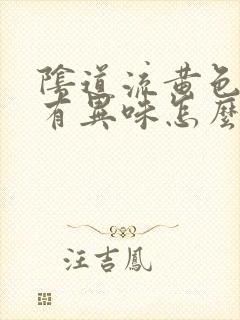 陰道流黃色
有異味怎麼
汪吉鳳